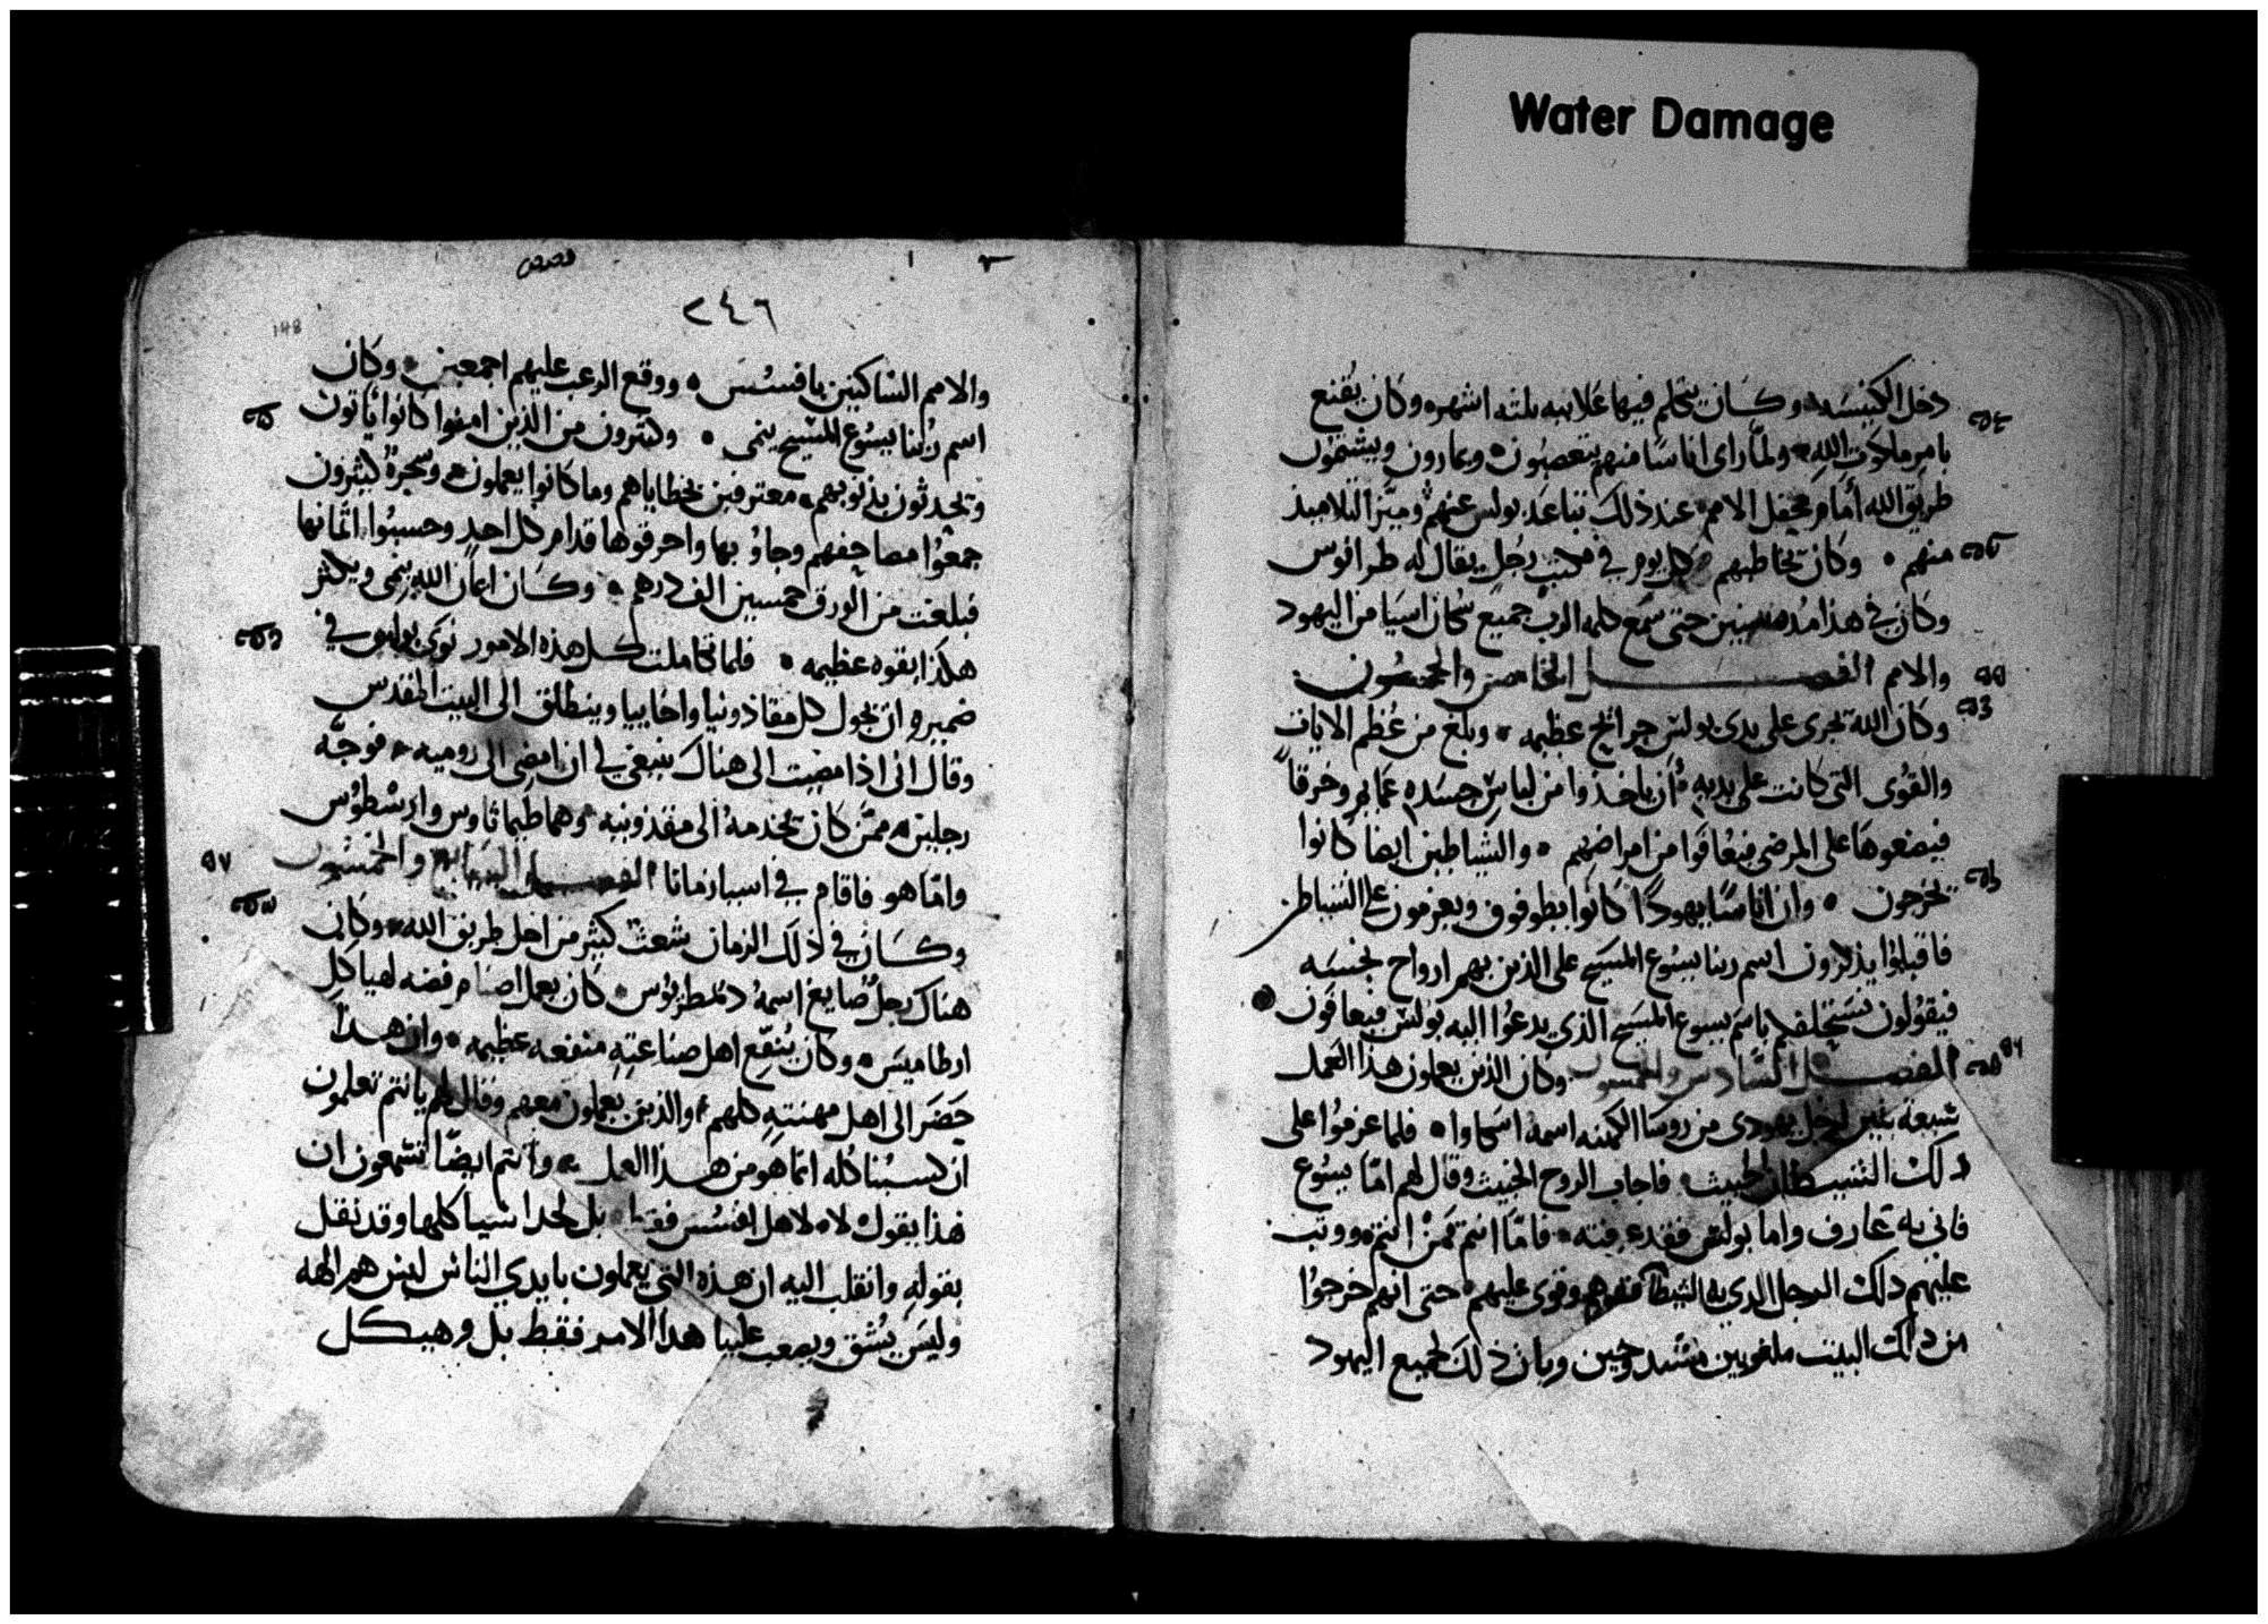 Water Damage
دخل الكنيسه وكان يتكلم فيها علانيه ثلثه اشهر وكان يُقنع
بامر ملكوت الله ولما راى اناسًا منهم يتعصبون ويمارون ويشتمون
طريق الله أمام محفل الامم عند ذلك تباعد بولس عنهم وميّز التلاميذ
منهم وكان يخاطبهم كل يوم في مكتب رجل يقال له طرانوس
وكان في هذا مده سنتين حتى سمع كلمه الرب جميع سكان اسيا من اليهود
والامم الفصل الخامس والخمسون
وكان الله يجرى على يدى بولس جرائح عظيمه وبلغ من عُظم الايات
والقوى التي كانت على يديه أن ياخذوا من لباس جسده عمايم وخرقًا
فيضعوها على المرضى فيعافوا من امراضهم والشياطين ايضا كانوا
يخرجون وان اناسًا يهودًا كانوا يطوفون ويعزمون على الشياطين
فاقبلوا يذكرون اسم ربنا يسوع المسيح على الذين بهم ارواح نجسه
فيقولون نستحلفكم باسم يسوع المسيح الذي يدعوا اليه بولس فيعافون
الفصل السادس والخمسون وكان الذين يعملون هذا العمل
سبعة بنين لرجل يهودى من روسا الكهنه اسمه اسكاوا فلما عزموا على
ذلك الشيطان الخبيث فاجاب الروح الخبيث وقال لهم امّا يسوع
فاني به عارف واما بولس فقد عرفته فامّا انتم فمن انتم ووثب
عليهم ذلك الرجل الذي به الشيطان وقوى عليهم حتى انهم خرجوا
من ذلك البيت ملغوبين مشدوخين وبان ذلك لجميع اليهود
قصص
٢٤٦
148
والامم الساكنين بافسُسَ ووقع الرعب عليهم اجمعين وكان
اسم ربنا يسوع المسيح ينمى وكثيرون من الذين امنوا كانوا يأتون
ويحدثون بذنوبهم معترفين بخطاياهم وما كانوا يعملون وسحرةٌ كثيرون
جمعُوا مصاحفهم وجاؤ بها واحرقوها قدام كل احد وحسبُوا اثمانها
فبلغت من الورق خمسين الف درهم وكان ايمان الله ينمى ويكثر
هكذا بقوه عظيمه فلما تكاملت كل هذه الامور نوى بولس في
ضميره ان يجول كل مقاذونيا واخاييا وينطلق الى البيت المقدس
وقال انى اذا مضيت الى هناك ينبغي لي ان امضى الى روميه فوجّه
رجلين ممّن كان يخدمهُ الى مقذونيه وهما طيماثاوس وارسْطوُس
وامّا هو فاقام في اسيا زمانا الفصل السابع والخمسون
وكان في ذلك الزمان شعث كثير من اجل طريق الله وكان
هناك رجلٌ صايغ اسمهُ دمطريُوس كان يعمل اصنام فضه لهياكل
ارطاميسَ وكان يُنفّع اهل صناعتِهِ منفعه عظيمه وان هذا
حَضَر الى اهل مهنتهِ كلهم والذين يعملون معهم وقال لهم يا انتم تعلمون
ان كسبُنا كُله انما هو من هذا العمل وانتم ايضًا تسمعون ان
هذا بقوله لا لاهل افسُس فقط بل لجل اسيا كلها وقد نقل
بقولهِ وانقلب اليه ان هذه التي تعملون بايدي الناس ليس هم الهه
وليسَ يُشق ويصعب علينا هذا الامر فقط بل وهيكل